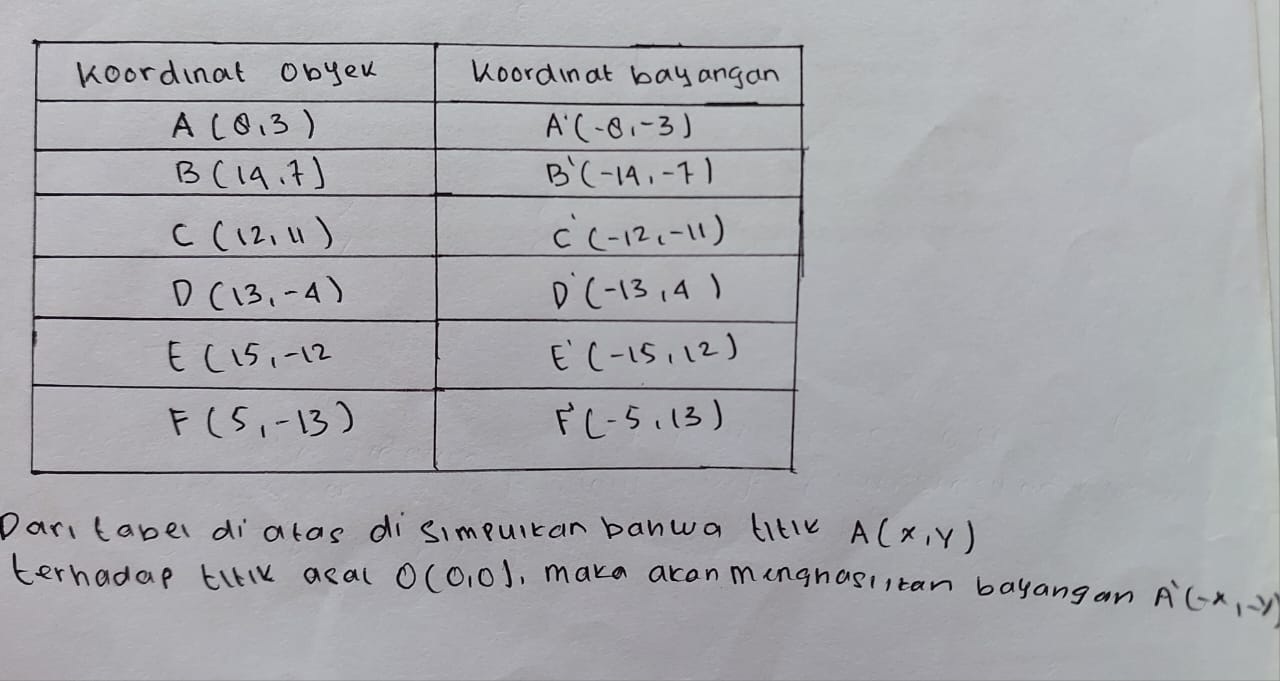 Koordinat Obyek Koordinat bayangan
A (8,3) A'(-8,-3)
B (14,7) B'(-14,-7)
C (12,11) C'(-12,-11)
D (13,-4) D'(-13,4)
E (15,-12 E'(-15,12)
F (5,-13) F'(-5,13)
Dari tabel di atas di simpulkan bahwa titik A(x,y)
terhadap titik asal O(0,0), maka akan menghasilkan bayangan A'(-x,-y)